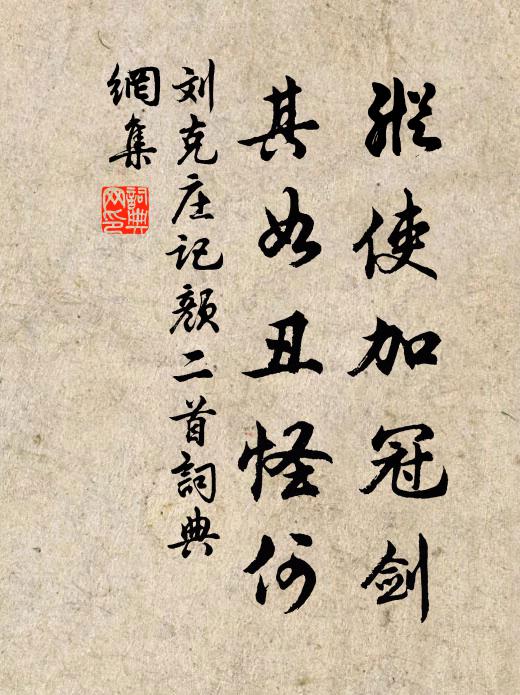 縱使加冠剑
其如丑怪何
刘克庄记颜二首詞典
網集
詞典
网印